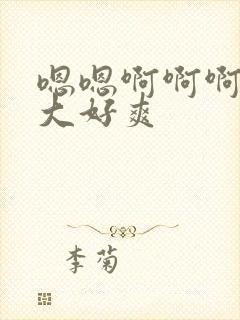 嗯嗯啊啊啊
大好爽
李菊